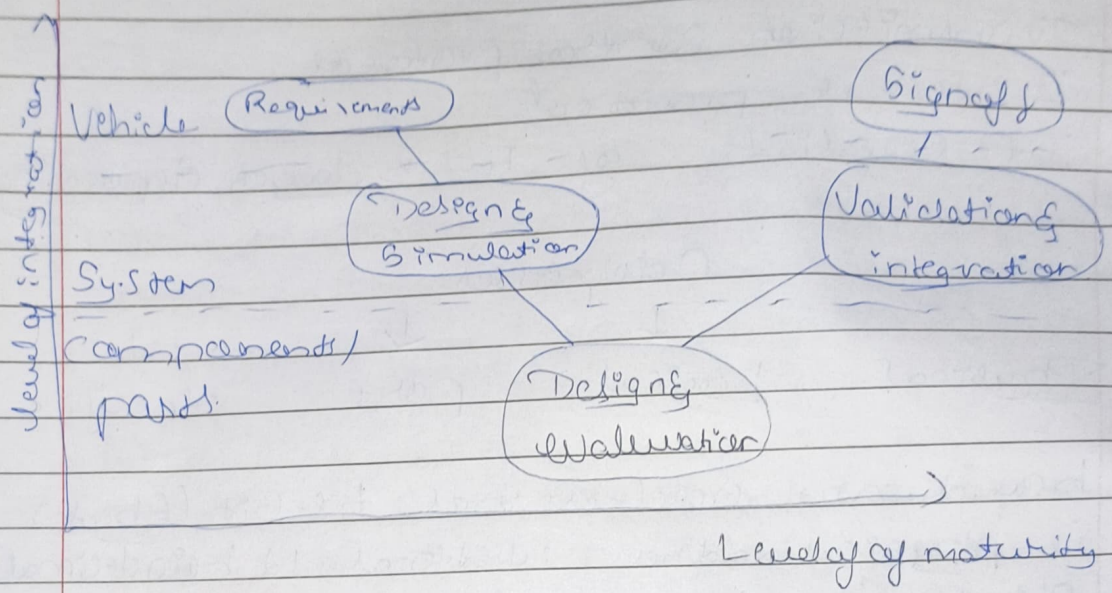 Level of integration
Vehicle
Requirements
Signoff
Design &
Simulation
Validation &
integration
System
Components/
parts.
Design &
evaluation
Level of of maturity